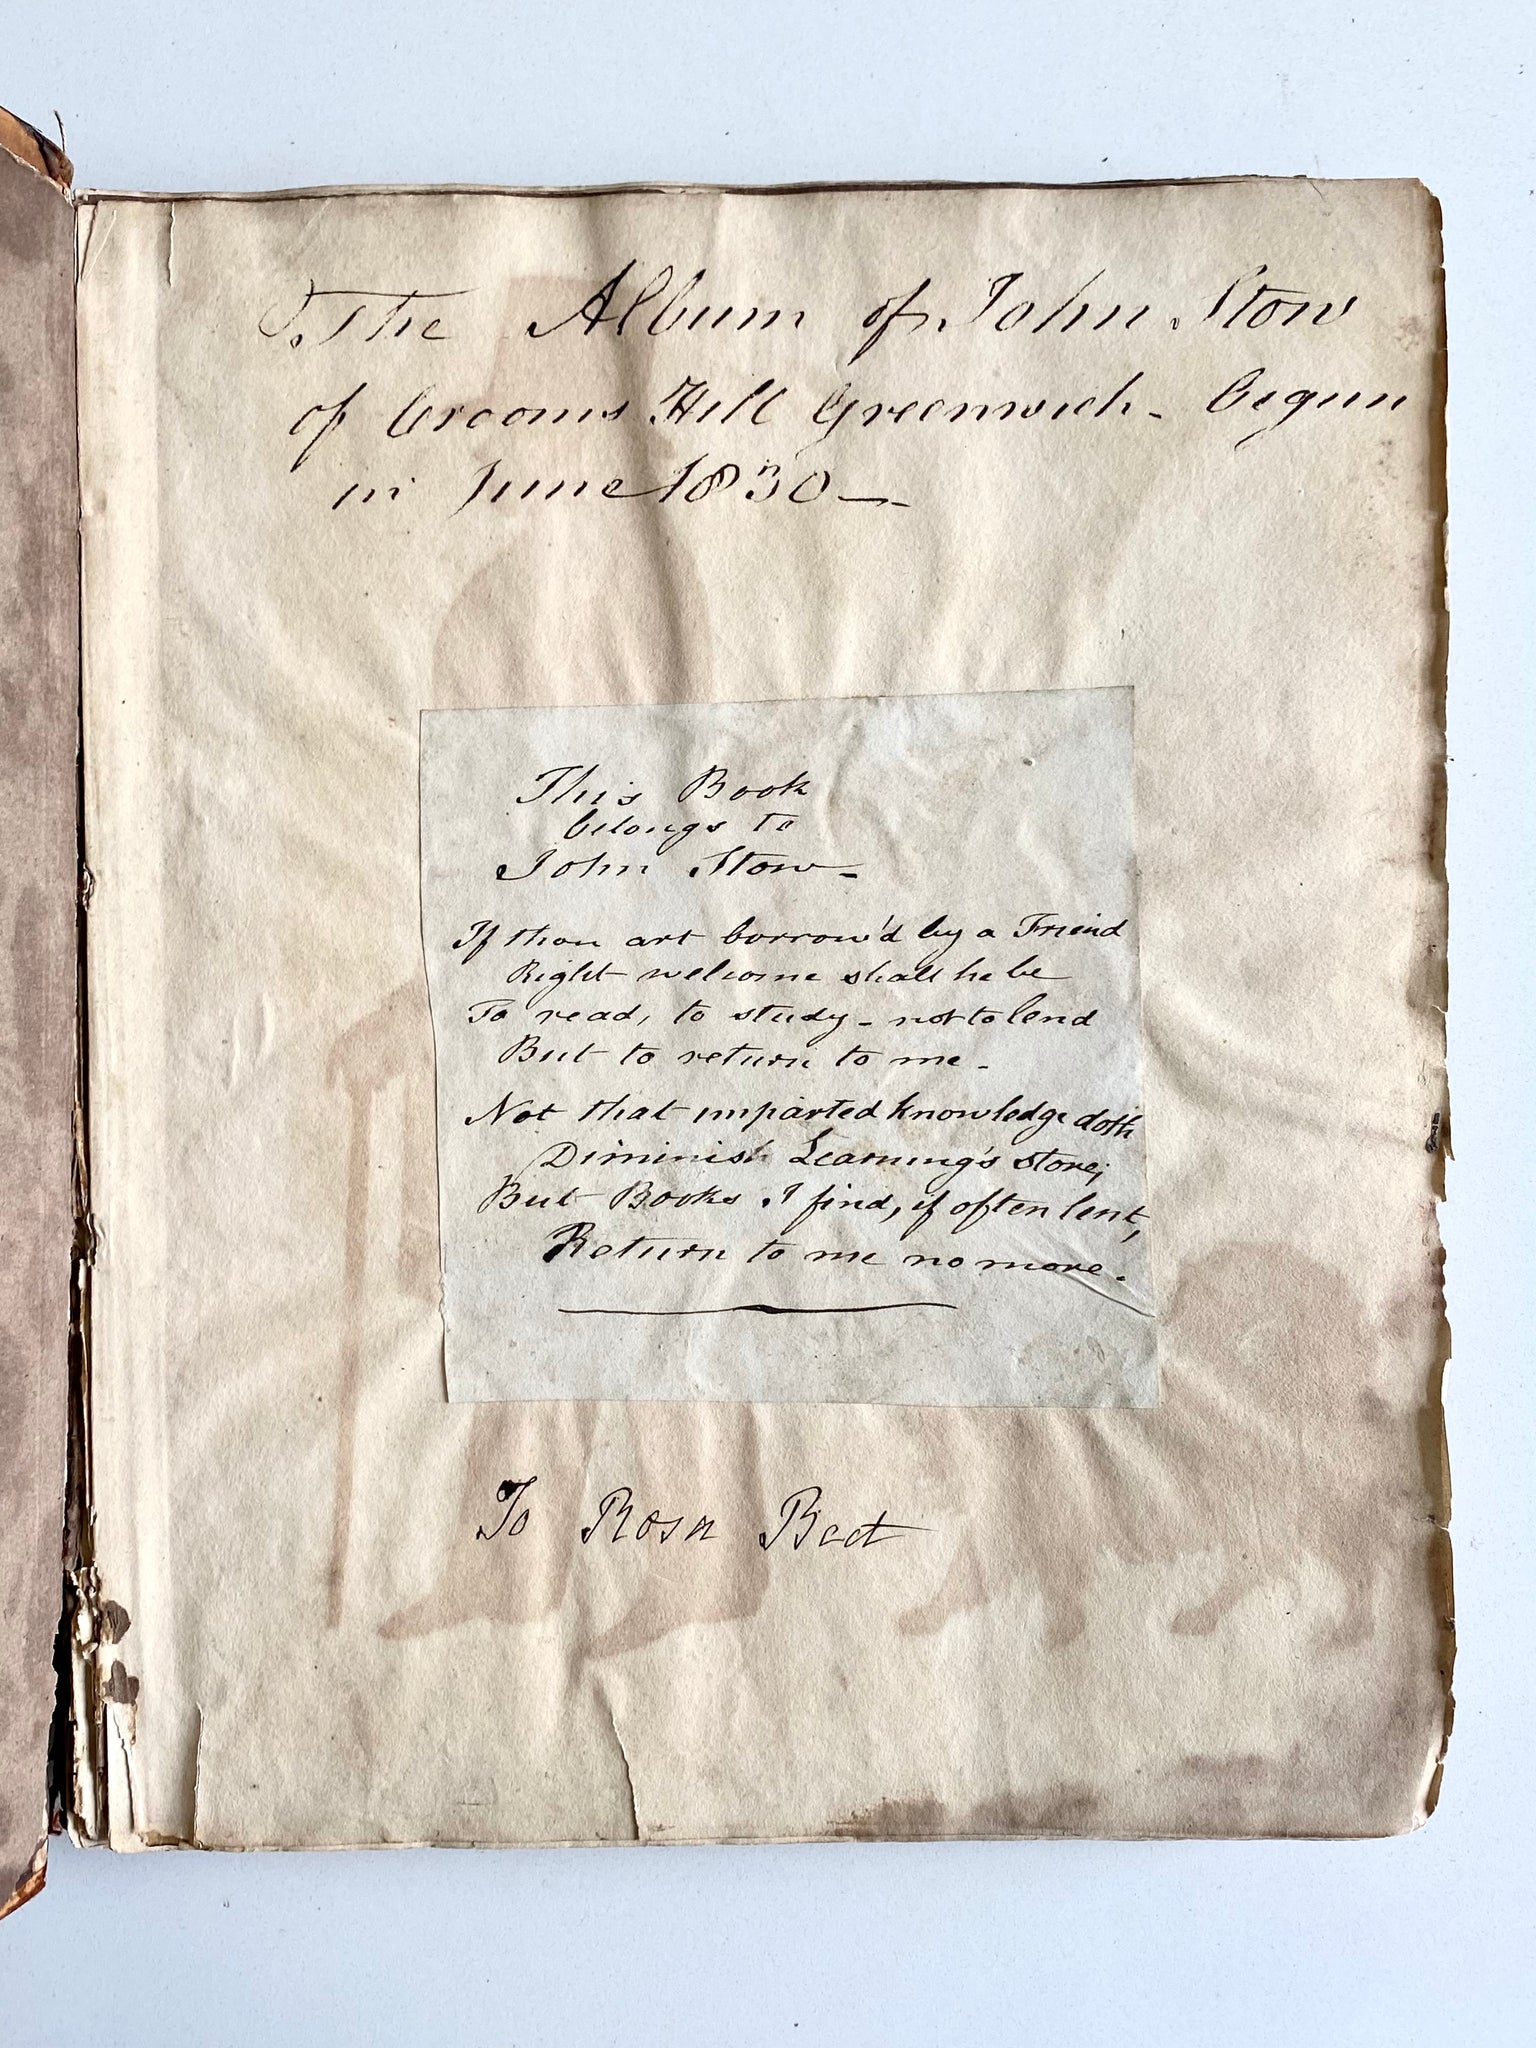 The Album of John Stow
of Crooms Hill Greenwich - begun
in June 1830 —
This Book
belongs to
John Stow -
If thou art borrow'd by a Friend
Right welcome shall he be
To read, to study - not to lend
But to return to me -
Not that imparted knowledge doth
Diminish Learning's store;
But Books I find, if often lent,
Return to me no more.
To Rosa